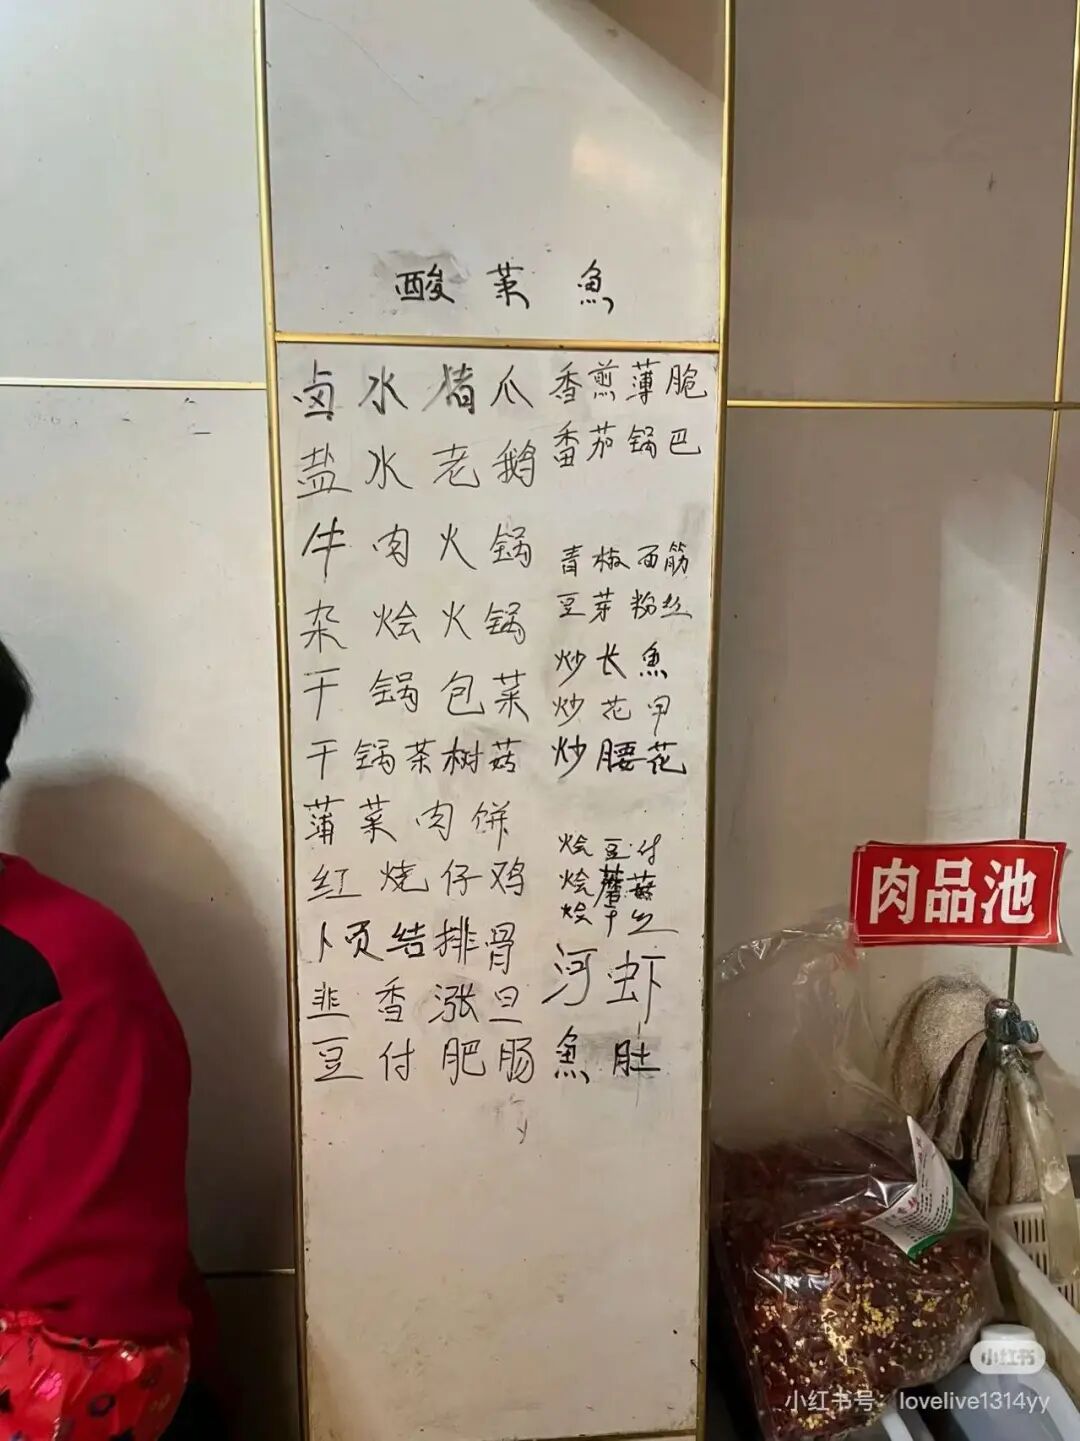 酸菜魚
卤水猪爪
盐水老鹅
牛肉火锅
杂烩火锅
干锅包菜
干锅茶树菇
蒲菜肉饼
红烧仔鸡
卜页结排骨
韭香涨旦
豆付肥肠
香煎薄脆
番茄锅巴
青椒面筋
豆芽粉丝
炒长魚
炒花甲
炒腰花
烩豆付
烩蘑菇
烩干丝
河虾
魚肚
肉品池
小红书
小红书号：lovelive1314yy